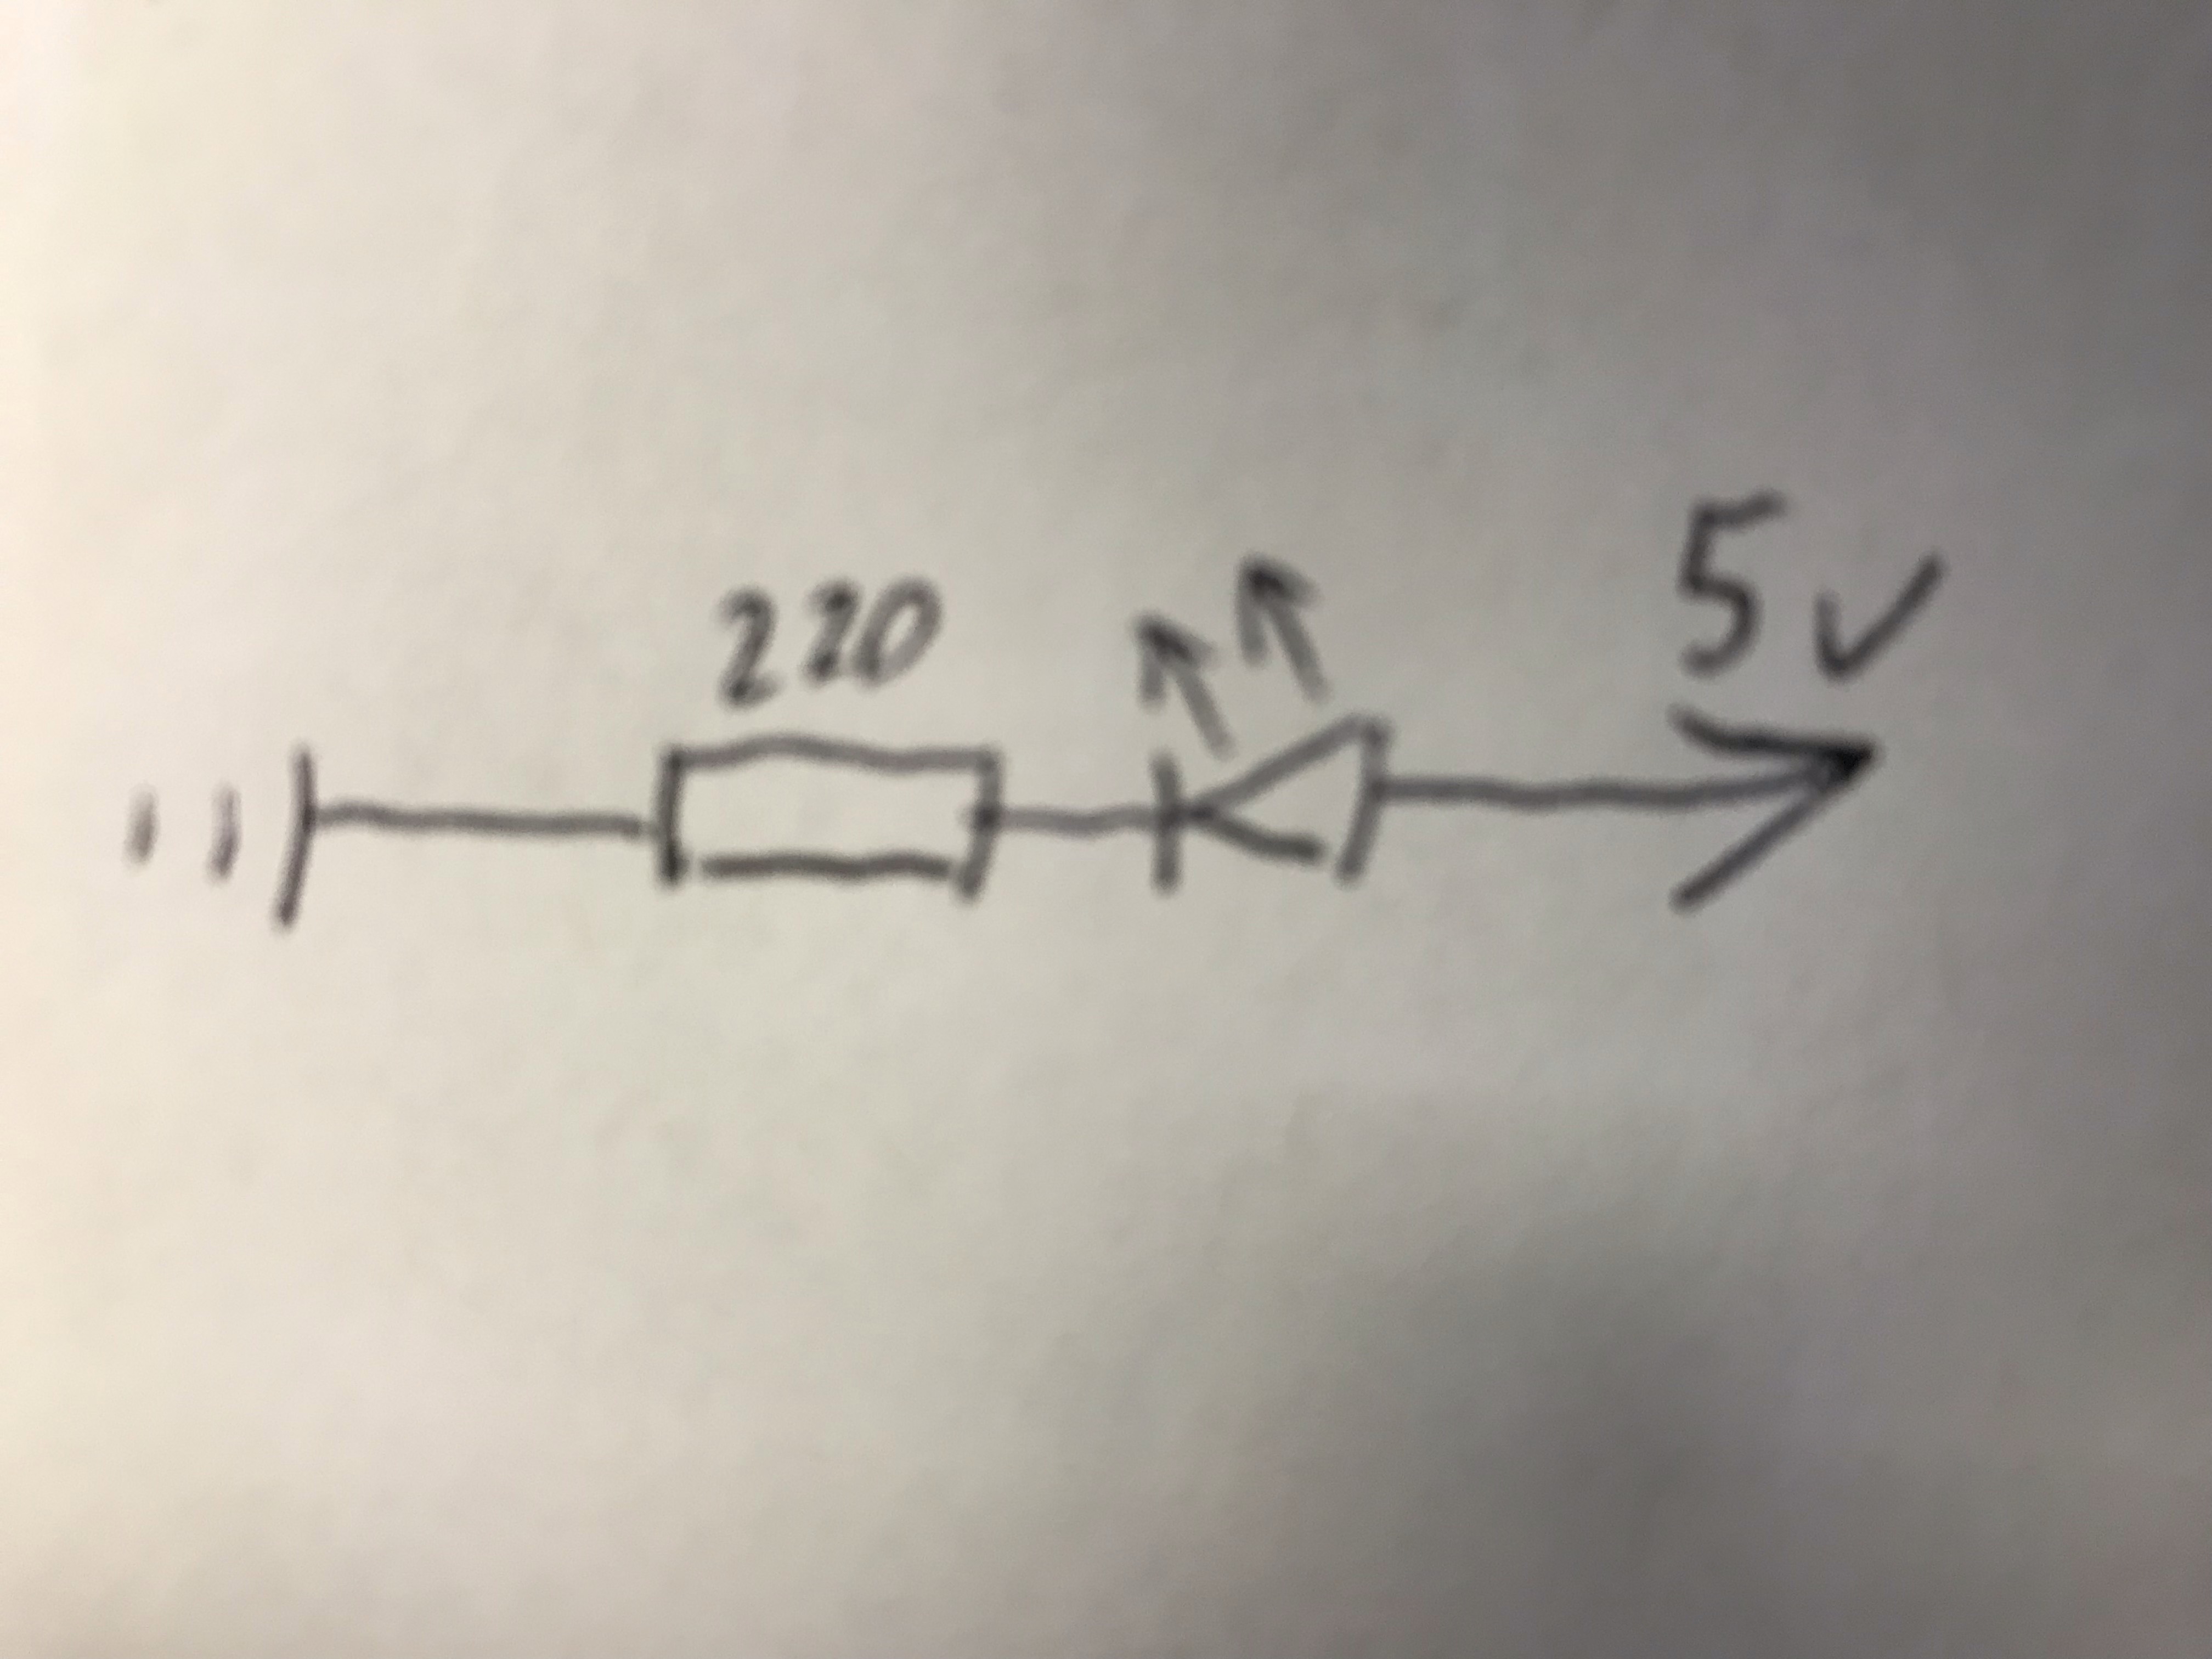 220
5V